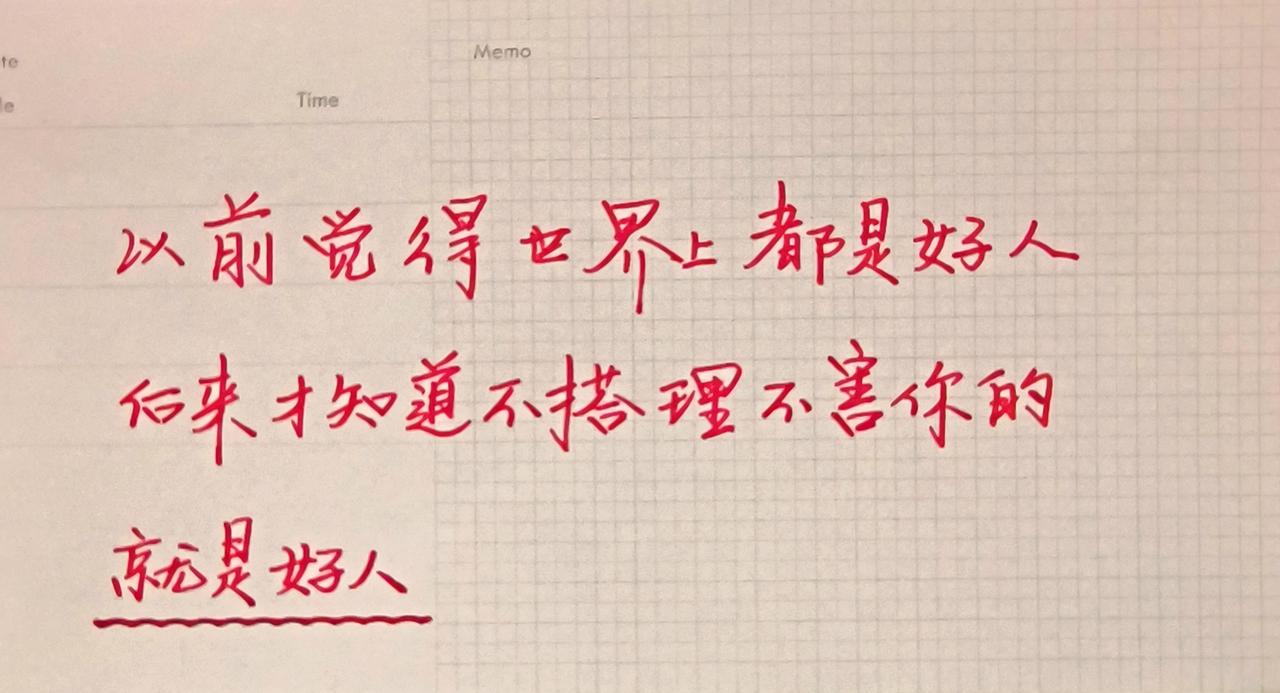 te
Memo
le
Time
以前觉得世界上都是好人
后来才知道不搭理不害你的
就是好人